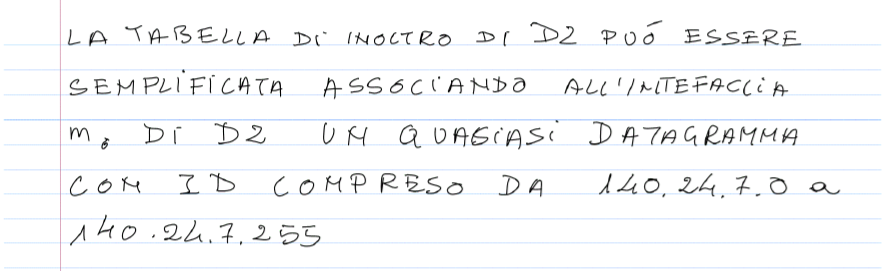 LA TABELLA Di INOLTRO DI D2 PUÓ ESSERE
SEMPLiFiCATA ASSOCIANDO ALL'INTEFACCiA
m₀ Di D2 UN QUAGiASi DATAGRAMMA
CON ID COMPRESO DA 140.24.7.0 a
140.24.7.255